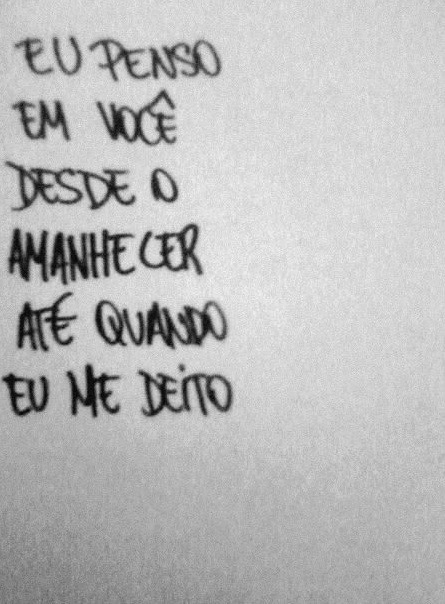 EU PENSO
EM VOCÊ
DESDE O
AMANHECER
ATÉ QUANDO
EU ME DEiTO